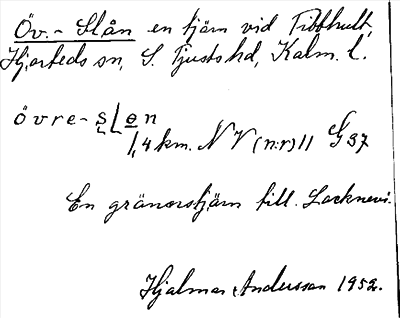 Öv.- Slån en tjärn vid Tibbhult,
Hjorteds sn, S. Tjusts hd, Kalm. l.
övre-slen
1,4 km. NV (n:r) 11 G 37
En gränorstjärn till Locknevi.
Hjalmar Andersson 1952.